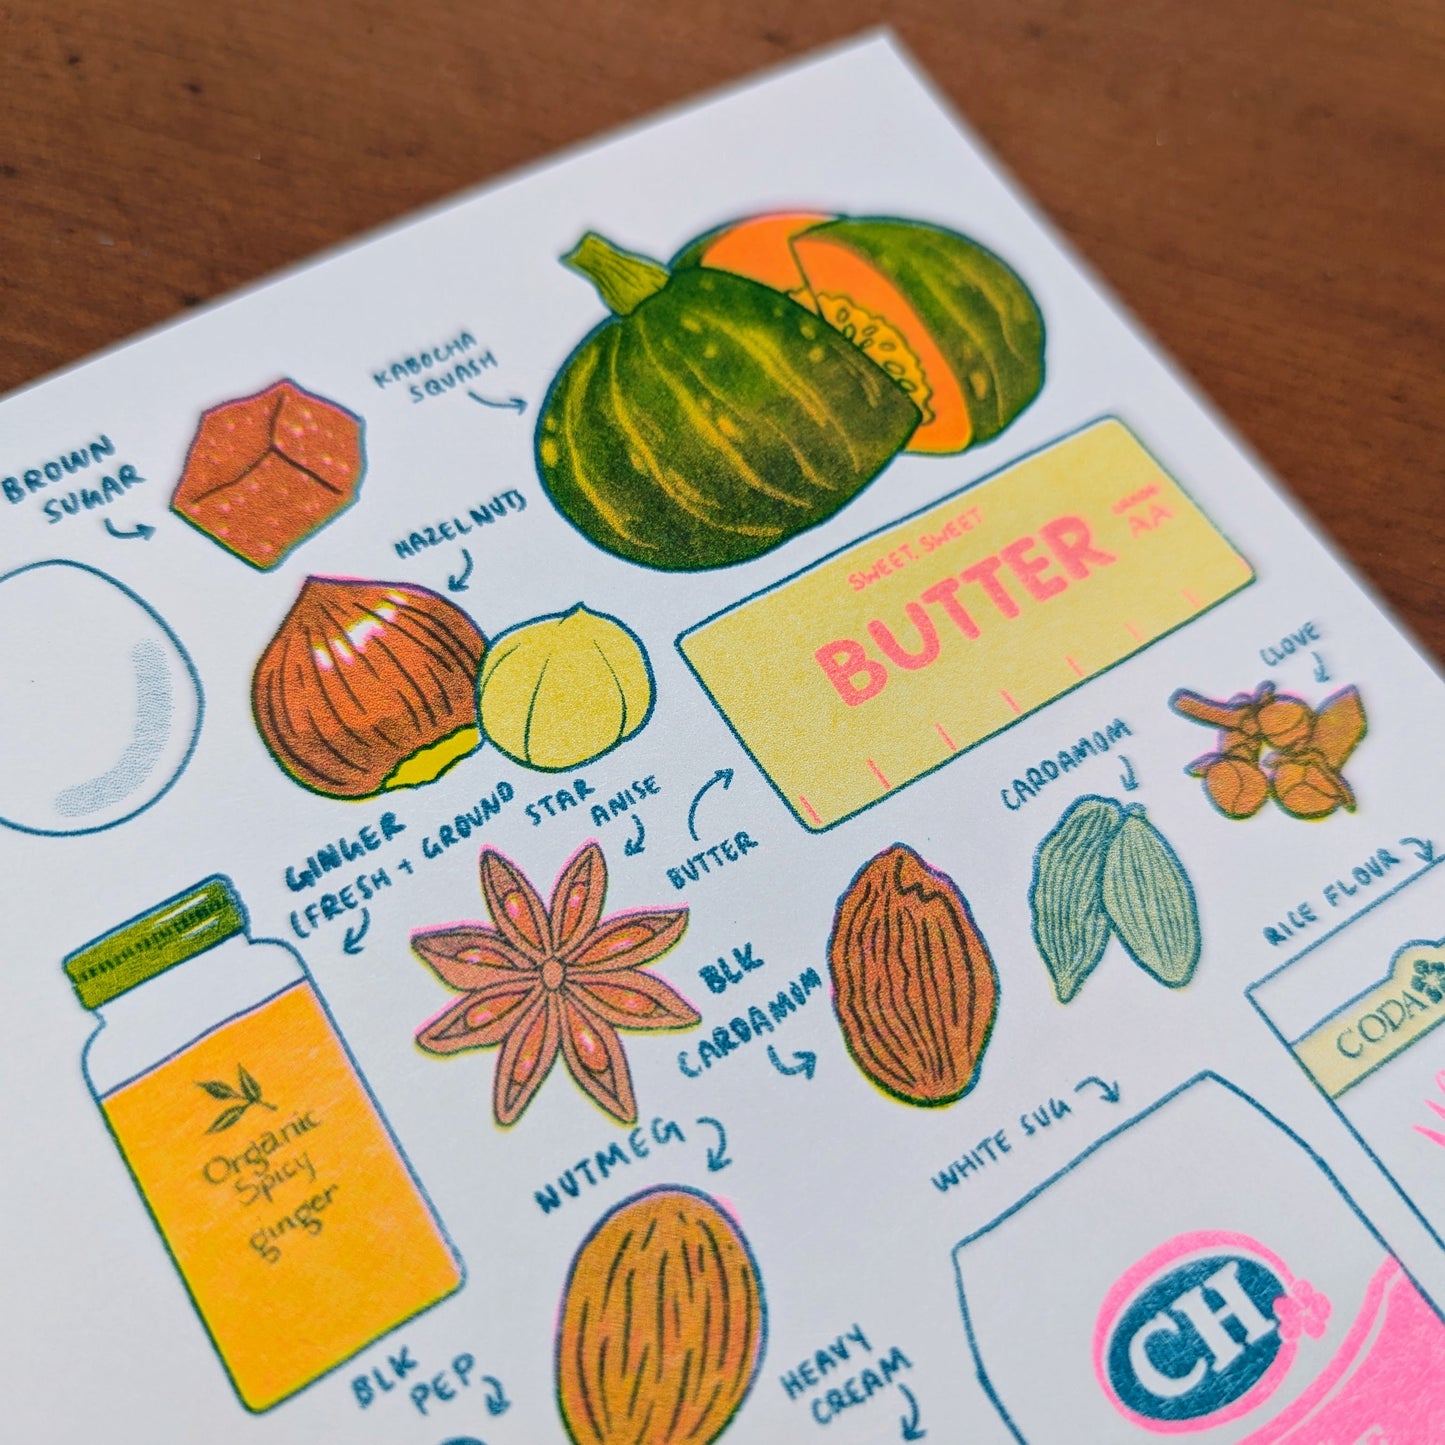 KABOCHA
SQUASH
BROWN
SUGAR
HAZELNUTS
SWEET, SWEET
BUTTER
AA
CLOVE
CARDAMOM
GINGER
(FRESH + GROUND
STAR
ANISE
BUTTER
RICE FLOUR
BLK
CARDAMOM
CODA
Organic
Spicy
ginger
NUTMEG
WHITE SUG
CH
BLK
PEP
HEAVY
CREAM